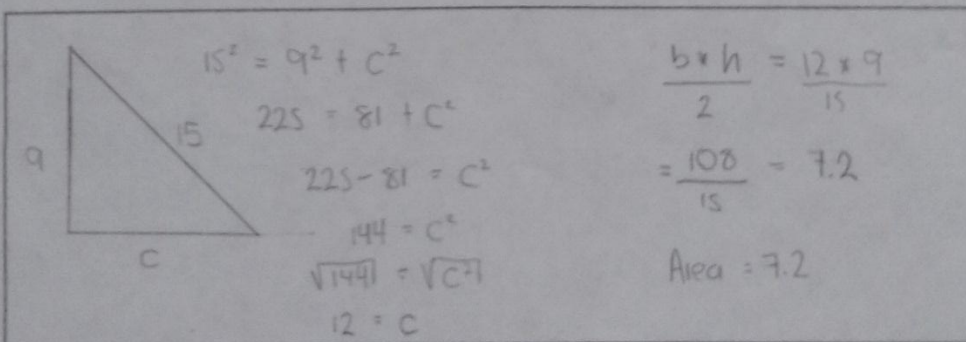 9
15
C
15² = 9² + C²
225 = 81 + C²
225 - 81 = C²
144 = C²
√144 = √C²
12 = C
b * h / 2 = 12 * 9 / 15
= 108 / 15 = 7.2
Area = 7.2